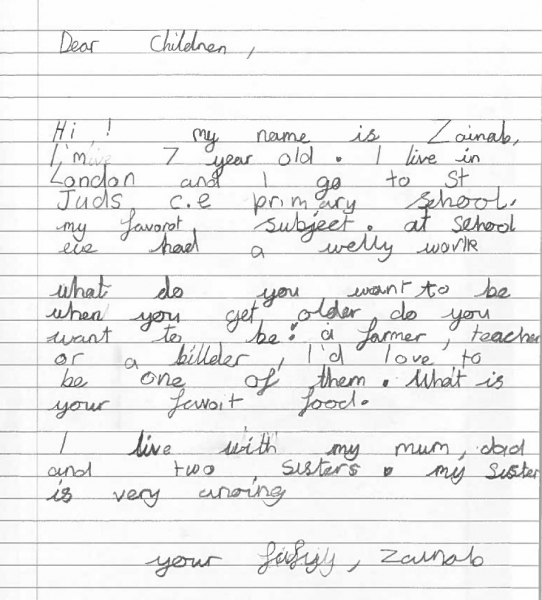 Dear Children,
Hi! my name is Zainab,
I,m 7 year old. I live in
London and I go to St
Juds c.e primary school.
my favorot subject. at school
eve had a welly work
what do you want to be
when you get older do you
want to be: a farmer, teacher
or a billder, I'd love to
be one of them. What is
your favoit food.
I live with my mum, dad
and two sisters. my sister
is very anoing
your, Zainab